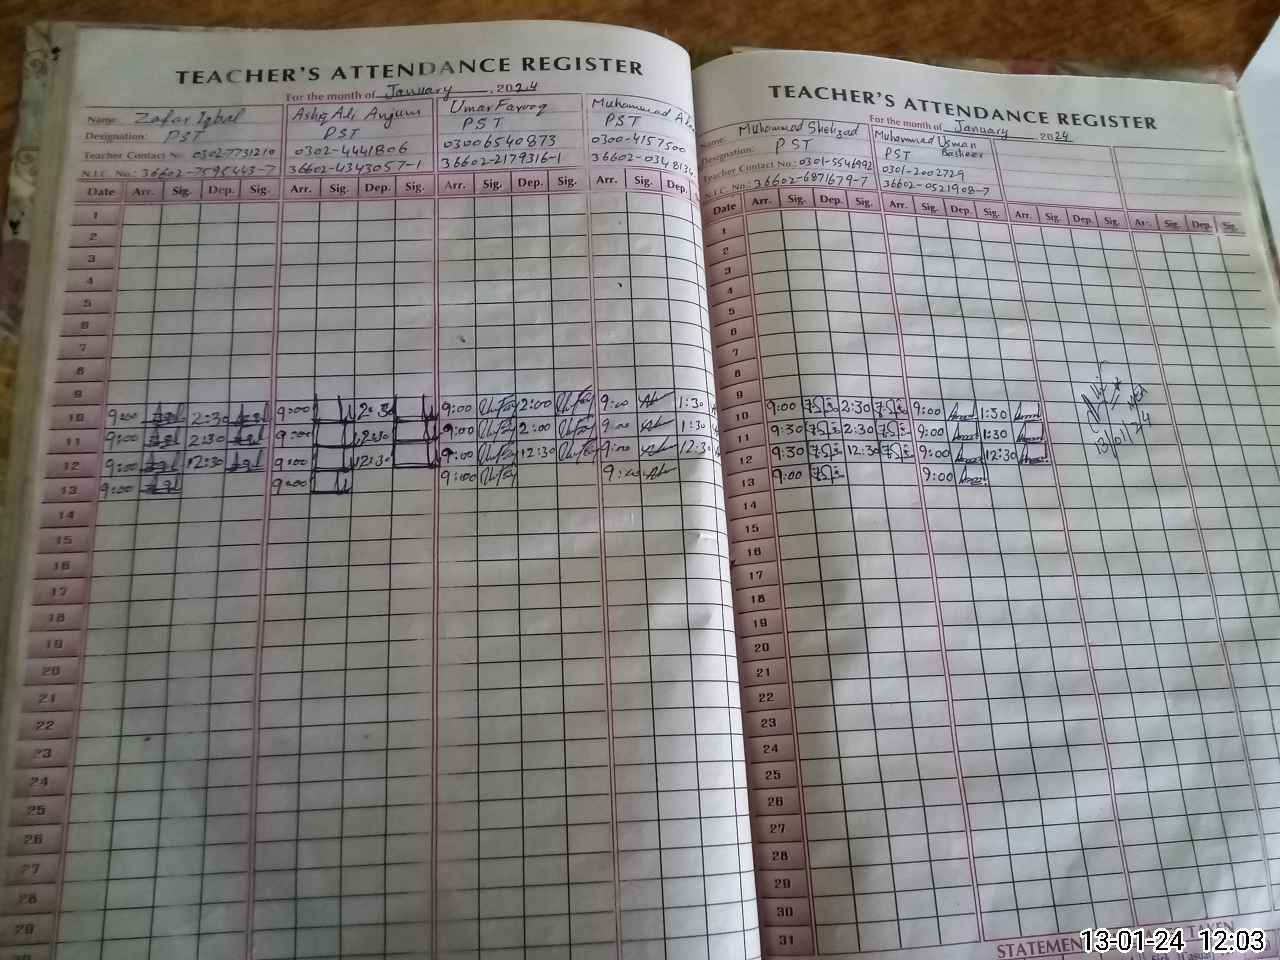 TEACHER'S ATTENDANCE REGISTER
For the month of January, 2024
Name: Zafar Iqbal Ashq Ali Anjum Umar Farooq Muhammad
Designation: PST PST PST PST
Teacher Contact No. 0302-7731210 0302-4441806 03006540873 0300-4157500
N.I.C. No.: 36602-7595443-7 36602-4343057-1 36602-2179316-1 36602-0348134
Date Arr. Sig. Dep. Sig. Arr. Sig. Dep. Sig. Arr. Sig. Dep. Sig. Arr. Sig. Dep.
1
2
3
4
5
6
7
8
9
10 9:00 2:30 9:00 2:30 9:00 2:00 9:00 1:30
11 9:00 2:30 9:00 2:30 9:00 2:00 9:00 1:30
12 9:00 12:30 9:00 12:30 9:00 12:30 9:00 12:30
13 9:00 9:00 9:00 9:00
14
15
16
17
18
19
20
21
22
23
24
25
26
27
28
29
30
TEACHER'S ATTENDANCE REGISTER
For the month of January 2024
Name: Muhammad Shehzad Muhammad Usman Basheer
Designation: PST PST
Teacher Contact No.: 0301-5546992 0301-2002729
N.I.C. No.: 36602-6871679-7 36602-0521908-7
Date Arr. Sig. Dep. Sig. Arr. Sig. Dep. Sig. Arr. Sig. Dep. Sig. Arr. Sig. Dep. Sig.
1
2
3
4
5
6
7
8
9
10 9:00 2:30 9:00 1:30
11 9:30 2:30 9:00 1:30
12 9:30 12:30 9:00 12:30
13 9:00 9:00
14
15
16
17
18
19
20
21
22
23
24
25
26
27
28
29
30
31
MEA
13/01/24
STATEMENT TAKEN
13-01-24 12:03